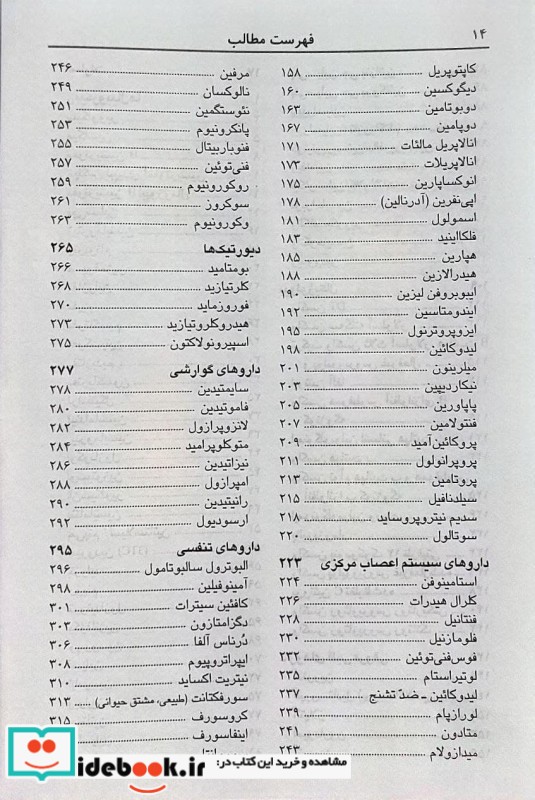 ۱۴
فهرست مطالب
کاپتوپریل ۱۵۸
دیگوکسین ۱۶۰
دوبوتامین ۱۶۳
دوپامین ۱۶۷
انالاپریل مالئات ۱۷۱
انالاپریلات ۱۷۳
انوکساپارین ۱۷۵
اپی‌نفرین (آدرنالین) ۱۷۸
اسمولول ۱۸۱
فلکااینید ۱۸۳
هپارین ۱۸۵
هیدرالازین ۱۸۸
ایبوبروفن لیزین ۱۹۰
ایندومتاسین ۱۹۲
ایزوپروترنول ۱۹۵
لیدوکائین ۱۹۸
میلرینون ۲۰۱
نیکاردیپین ۲۰۳
پاپاورین ۲۰۵
فنتولامین ۲۰۷
پروکائین‌آمید ۲۰۹
پروپرانولول ۲۱۱
پروتامین ۲۱۳
سیلدنافیل ۲۱۵
سدیم نیتروپروساید ۲۱۸
سوتالول ۲۲۰
داروهای سیستم اعصاب مرکزی ۲۲۳
استامینوفن ۲۲۴
کلرال هیدرات ۲۲۶
فنتانیل ۲۲۸
فلومازنیل ۲۳۰
فوس‌فنی‌توئین ۲۳۲
لوتیراستام ۲۳۵
لیدوکائین ـ ضدّ تشنج ۲۳۷
لورازپام ۲۳۹
متادون ۲۴۱
میدازولام ۲۴۳
مرفین ۲۴۶
نالوکسان ۲۴۹
نئوستگمین ۲۵۱
پانکرونیوم ۲۵۳
فنوباربیتال ۲۵۵
فنی‌توئین ۲۵۷
روکورونیوم ۲۵۹
سوکروز ۲۶۱
وکورونیوم ۲۶۳
دیورتیک‌ها ۲۶۵
بومتامید ۲۶۶
کلرتیازید ۲۶۸
فوروزماید ۲۷۰
هیدروکلروتیازید ۲۷۳
اسپیرونولاکتون ۲۷۵
داروهای گوارشی ۲۷۷
سایمتیدین ۲۷۸
فاموتیدین ۲۸۰
لانزوپرازول ۲۸۲
متوکلوپرامید ۲۸۴
نیزاتیدین ۲۸۶
امپرازول ۲۸۸
رانیتیدین ۲۹۰
ارسودیول ۲۹۲
داروهای تنفسی ۲۹۵
البوترول سالبوتامول ۲۹۶
آمینوفیلین ۲۹۸
کافئین سیترات ۳۰۱
دگزامتازون ۳۰۳
دُرناس آلفا ۳۰۶
ایپراتروپیوم ۳۰۸
نیتریت اکساید ۳۱۰
سورفکتانت (طبیعی، مشتق حیوانی) ۳۱۳
کروسورف ۳۱۵
اینفاسورف
مشاهده و خرید این کتاب در:
idebook.ir